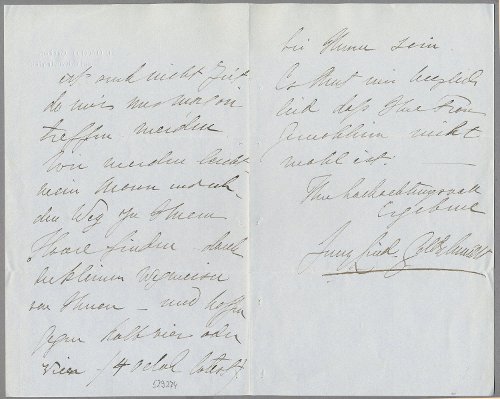 es auch nicht
da wir uns
treffen werden
Wir werden leicht
mein Mann und ich
den Weg zu Ihrem
Hause finden - dank
Wegweiser
von Ihnen - und hoffen
gegen halb vier oder
vier /4
573274
bei Ihnen sein.
Es thut mir herzlich
leid dass Ihre Frau
Gemahlin nicht
wohl ist.
Ihre hochachtungsvoll
Ergebene
Jenny Lind-Goldschmidt